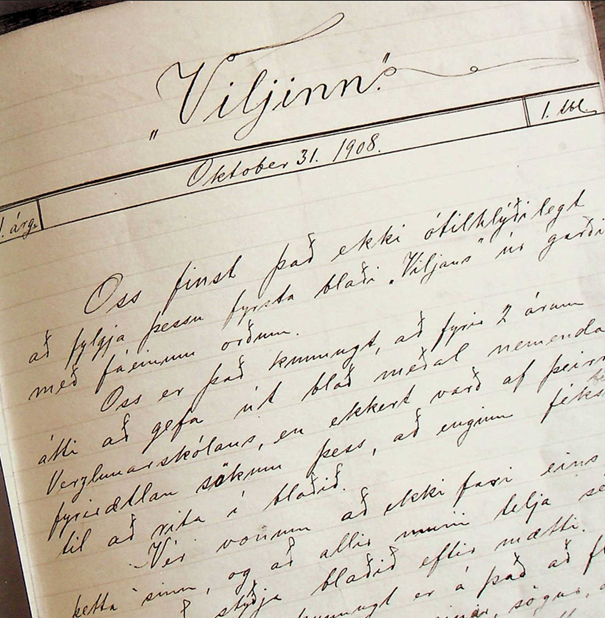 „Viljinn".
1. árg.
Oktober 31. 1908.
1. tbl.
Oss finst það ekki ótilhlýðilegt
að fylgja þessu fyrsta blaði „Viljans" úr garði
með fáeinum orðum.
Oss er það kunnugt, að fyrir 2 árum
átti að gefa út blað meðal nemenda
Verzlunarskólans, en ekkert varð af þeirri
fyrirætlan sökum þess, að enginn féks
til að rita í blaðið.
Vér vonum að ekki fari eins
þetta sinn, og að allir muni telja
styðja blaðið eftir mætti.
er á það að
sögur